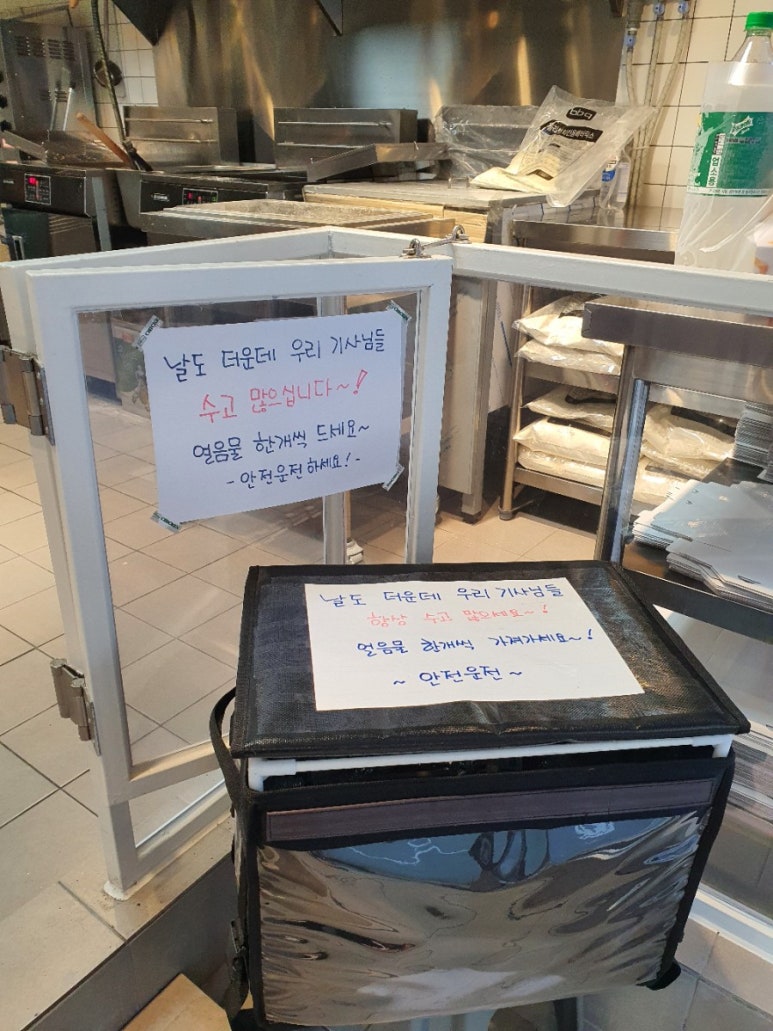 bbq
업소용
날도 더운데 우리 기사님들
수고 많으십니다~!
얼음물 한개씩 드세요~
- 안전운전하세요! -
날도 더운데 우리 기사님들
항상 수고 많으세요~!
얼음물 한개씩 가져가세요~!
~ 안전운전 ~